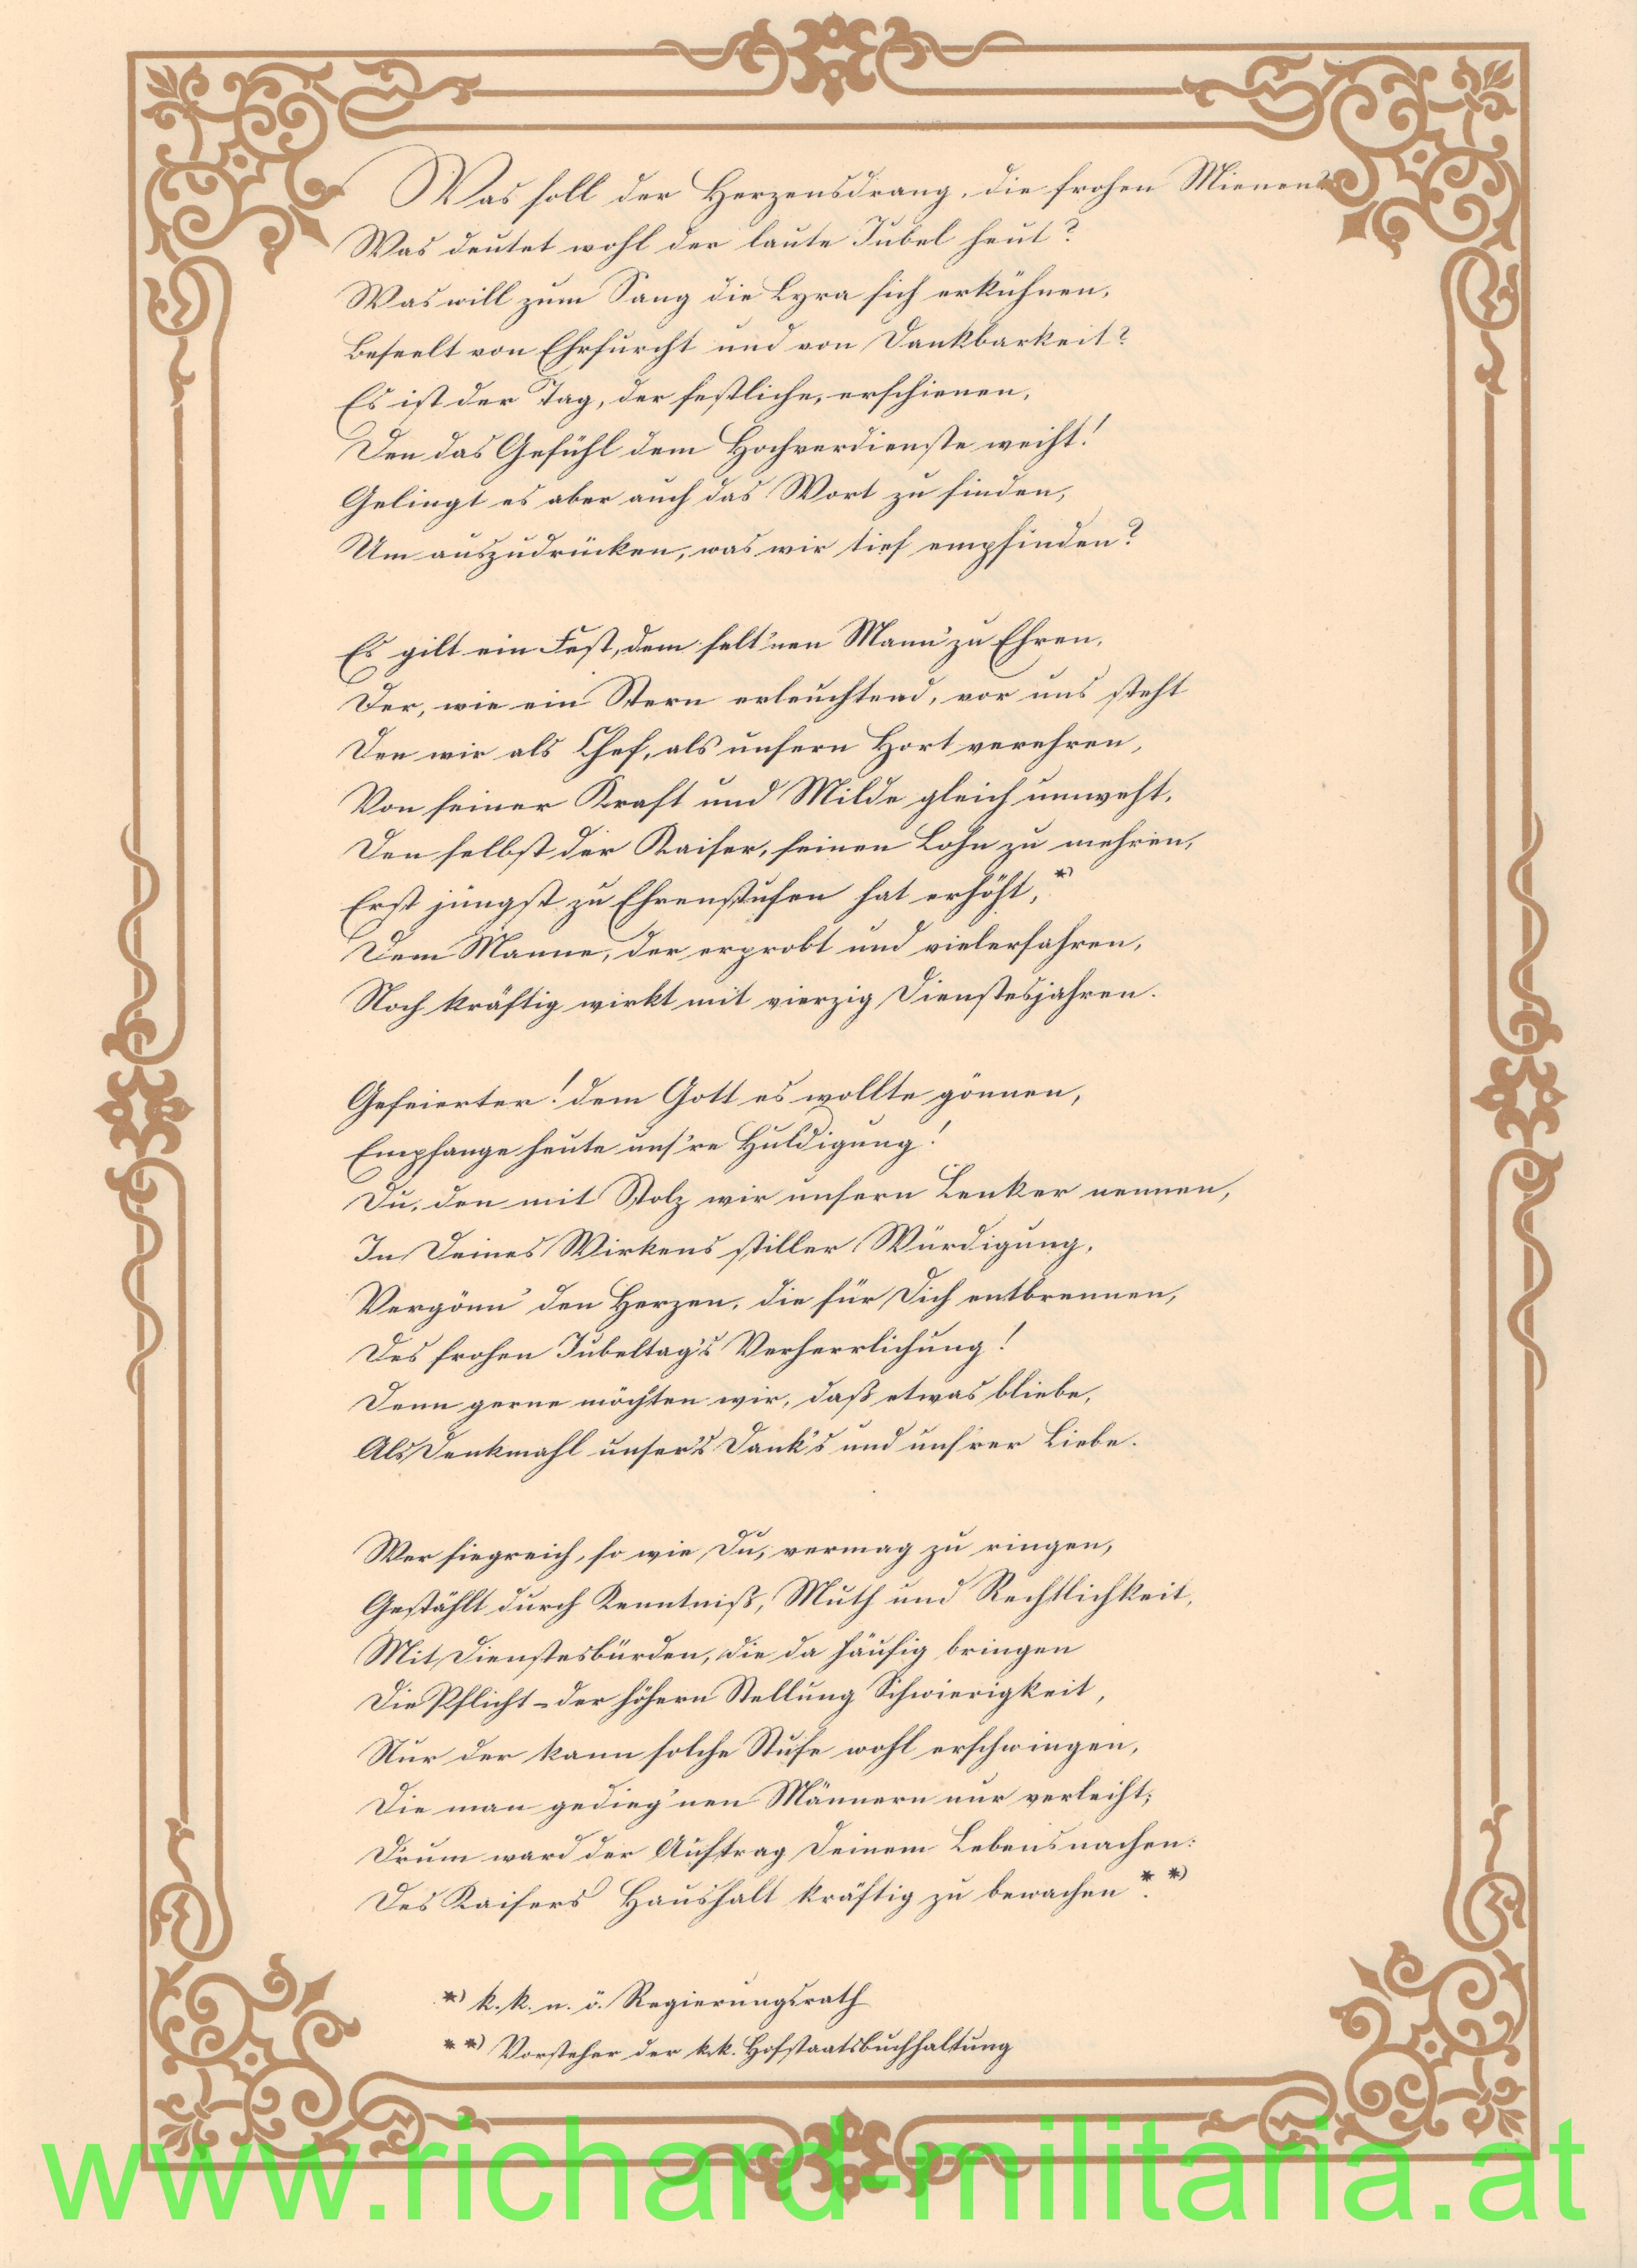 Was soll der Herzensdrang, die frohen Mienen?
Was deutet wohl der laute Jubel heut?
Was will zum Sang die Lyra sich erkühnen,
Beseelt von Ehrfurcht und von Dankbarkeit?
Es ist der Tag, der festliche, erschienen,
Den das Gefühl dem Hochverdienste weiht!
Gelingt es aber auch das Wort zu finden,
Um auszudrücken, was wir tief empfinden?
Es gilt ein Fest, dem selt'nen Mann' zu Ehren,
Der, wie ein Stern erleuchtend, vor uns steht
Den wir als Chef, als unsern Hort verehren,
Von seiner Kraft und Milde gleich umweht,
Den selbst der Kaiser, seinen Lohn zu mehren,
Erst jüngst zu Ehrenstufen hat erhöht, *)
Dem Manne, der erprobt und vielerfahren,
Noch kräftig wirkt mit vierzig Dienstesjahren.
Gefeierter! dem Gott es wollte gönnen,
Empfange heute uns're Huldigung!
Du, den mit Stolz wir unsern Lenker nennen,
In Deines Wirkens stiller Würdigung,
Vergönn' den Herzen, die für Dich entbrennen,
Des frohen Jubeltag's Verherrlichung!
Denn gerne möchten wir, daß etwas bliebe,
Als Denkmahl unser's Dank's und uns'rer Liebe.
Wer siegreich, so wie Du, vermag zu ringen,
Gestählt durch Kenntniß, Muth und Rechtlichkeit,
Mit Dienstesbürden, die da häufig bringen
Die Pflicht - der höhern Stellung Schwierigkeit,
Nur der kann solche Stufe wohl erschwingen,
Die man gedieg'nen Männern nur verleiht;
D'rum ward der Auftrag Deinem Lebensnachen:
Des Kaisers Haushalt kräftig zu bewachen. **)
*) k. k. n. ö. Regierungsrath
**) Vorsteher der k.k. Hofstaatsbuchhaltung
www.richard-militaria.at